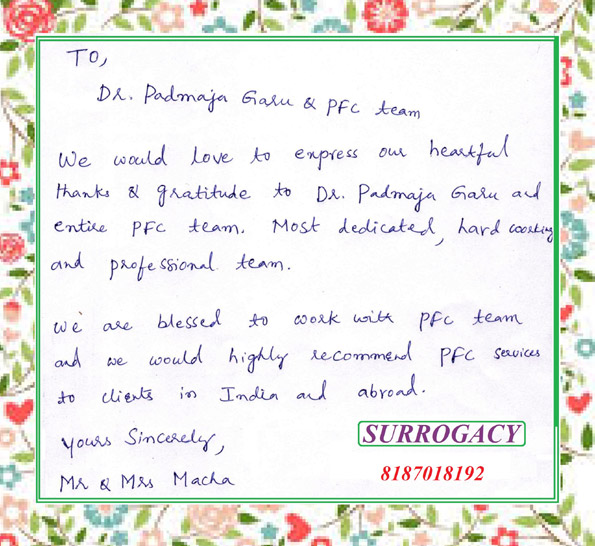 TO,
Dr. Padmaja Garu & PFC team
We would love to express our heartful
thanks & gratitude to Dr. Padmaja Garu and
entire PFC team. Most dedicated, hard working
and professional team.
We are blessed to work with PFC team
and we would highly recommend PFC services
to clients in India and abroad.
Yours Sincerely,
Mr & Mrs Macha
SURROGACY
8187018192